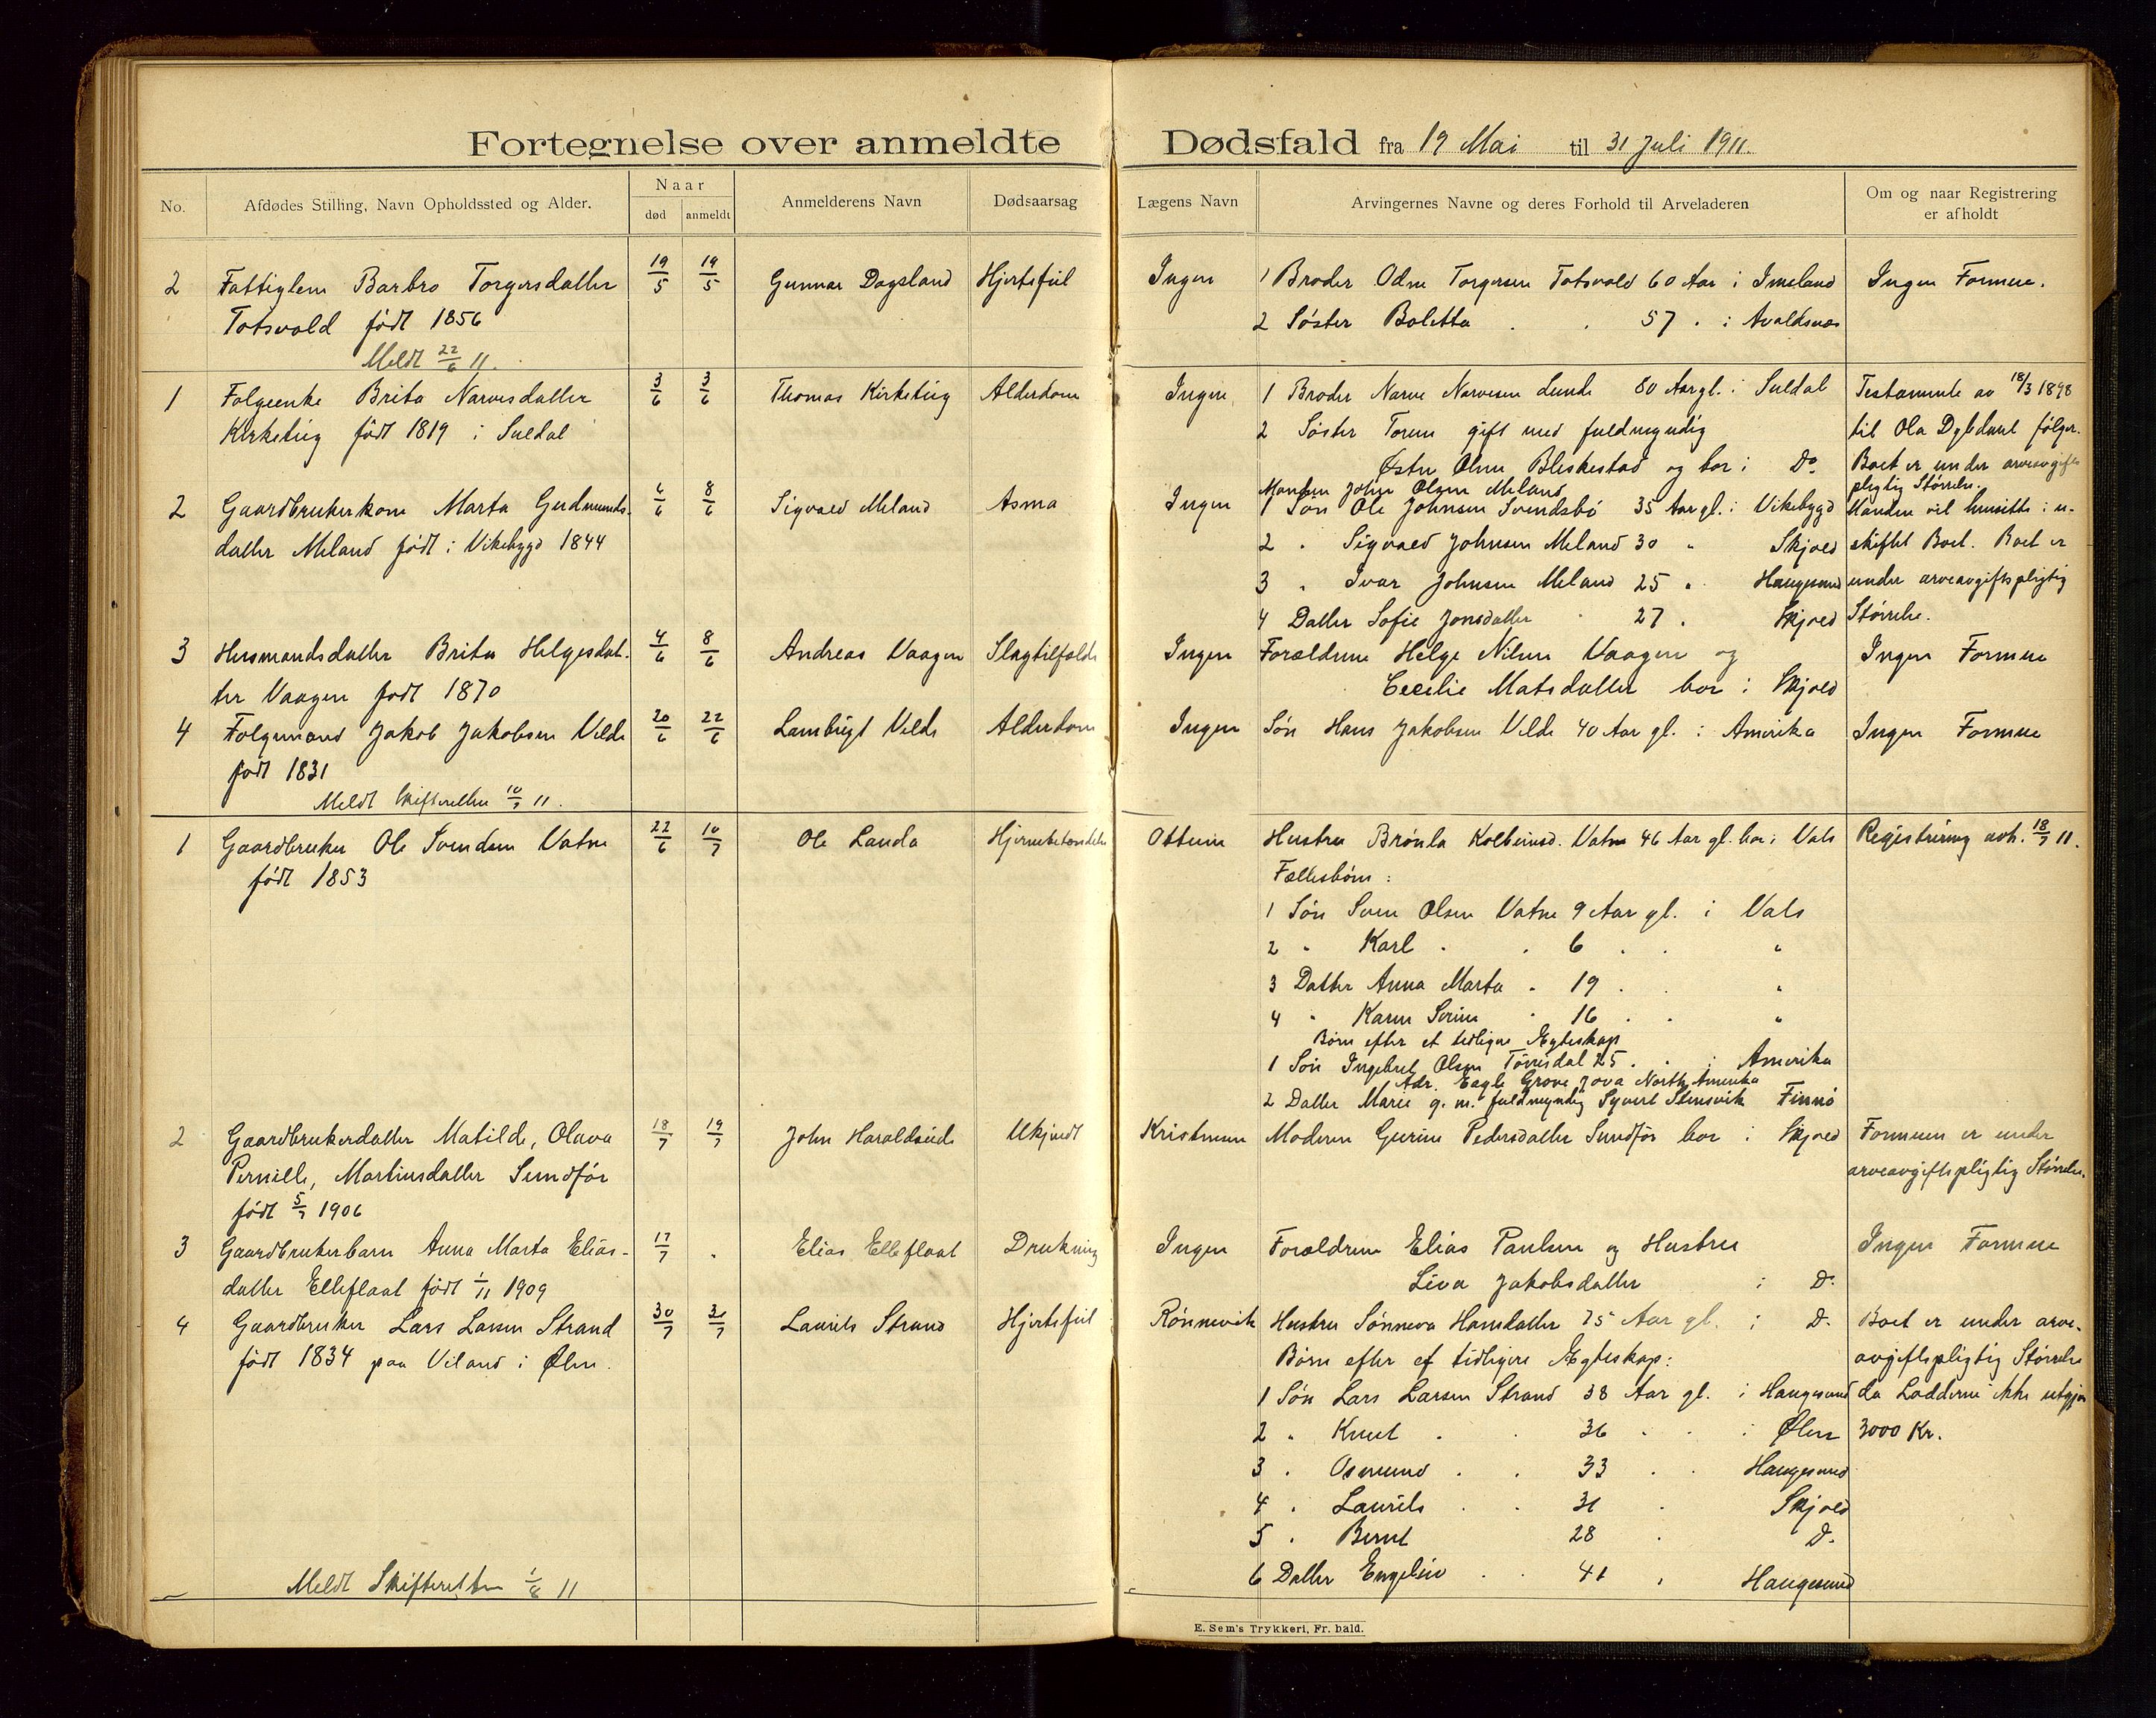 Fortegnelse over anmeldte Dødsfald fra 19 Mai til 31 Juli 1911.
No. Afdødes Stilling, Navn Opholdssted og Alder. Naar død anmeldt Anmelderens Navn Dødsaarsag Lægens Navn Arvingernes Navne og deres Forhold til Arveladeren Om og naar Registrering er afholdt
2 Fattiglem Barbro Torgersdatter 19/5 19/5 Gunnar Dagsland Hjertefeil Ingen 1 Broder Odne Torgersen Totsvold 60 Aar i Imsland Ingen Formue.
Totsvold født 1856 2 Søster Boletta . . 57 . i Avaldsnes
Meldt 22/6 11.
1 Folgeenke Brita Narvesdatter 3/6 3/6 Thomas Kirketeig Alderdom Ingen 1 Broder Narve Narvesen Lunde 80 Aar gl. i Suldal Testamente av 18/3 1898
Kirketeig født 1819 i Suldal 2 Søster Toren gift med fuldmyndig til Ola Dybdael følger.
Østen Olsen Bleskestad og bor i Do. Boet er under arveavgifts
pligtig Størrelse.
Manden John Olsen Meland
2 Gaardbrukerkone Marta Gudmunds- 6/6 8/6 Sigvald Meland Asma Ingen 1 Søn Ole Johnsen Svendsbø 35 Aar gl. i Vikebygd Manden vil hensitte i u-
datter Meland født i Vikebygd 1844 2 " Sigvald Johnsen Meland 30 " Skjold skiftet Boet. Boet er
3 " Ivar Johnsen Meland 25 " Haugesund under arveavgiftspligtig
4 Datter Sofie Jonsdatter " 27 . Skjold Størrelse.
3 Husmandsdatter Brita Helgesdat- 4/6 8/6 Andreas Vaagen Slagtilfælde Ingen Forældrene Helge Nilsen Vaagen og Ingen Formue
ter Vaagen født 1870 Cecilie Matsdatter bor i Skjold
4 Folgemand Jakob Jakobsen Velde 20/6 22/6 Lambrigt Velde Alderdom Ingen Søn Hans Jakobsen Velde 40 Aar gl. i Amerika Ingen Formue
født 1831
Meldt Skifteretten 10/7 11.
1 Gaardbruker Ole Svendsen Vatne 22/6 10/7 Ole Landa Hjernebetændelse Ottesen Hustru Brønla Kolbeinsd. Vatne 46 Aar gl. bor i Vats Registrering avh. 18/7 11.
født 1853 Fællesbørn:
1 Søn Sven Olsen Vatne 9 Aar gl. i Vats
2 " Karl . . 6 . . "
3 Datter Anna Marta . 19 . . "
4 " Karen Serine . 16 . . "
Børn efter et tidligere Ægteskap
1 Søn Ingebret Olsen Tørresdal 25 . . i Amerika
Adr. Eagle Grove Jova North Amerika
2 Datter Marie g. m. fuldmyndig Syvert Stensvik Finnø
2 Gaardbrukerdatter Matilde, Olava 18/7 19/7 John Haraldseide Ukjendt Kristensen Moderen Gurine Pedersdatter Sundfør bor i Skjold Formuen er under
Pernille, Martinusdatter Sundfør arveavgiftspligtig Størrelse.
født 5/7 1906
3 Gaardbrukerbarn Anna Marta Elias- 17/7 . Elias Elleflaat Drukning Ingen Forældrene Elias Paulsen og Hustru Ingen Formue
datter Elleflaat født 1/11 1909 Liva Jakobsdatter i Do.
4 Gaardbruker Lars Larsen Strand 30/7 31/7 Laurits Strand Hjertefeil Rønnevik Hustru Sønneva Hansdatter 75 Aar gl. i Do. Boet er under arve-
født 1834 paa Viland i Ølen. Børn efter et tidligere Ægteskap: avgiftspligtig Størrelse
1 Søn Lars Larsen Strand 38 Aar gl. i Haugesund da Lodderne ikke utgjør
2 . Knut . . 36 . . i Ølen 3000 Kr.
3 . Osmund . . 33 . . Haugesund
4 . Laurits . . 31 . Skjold
5 . Bernt 28 . Do.
6 Datter Engeline . . 41 . Haugesund
Meldt Skifteretten 1/8 11
E. Sem's Trykkeri, Fr. hald.